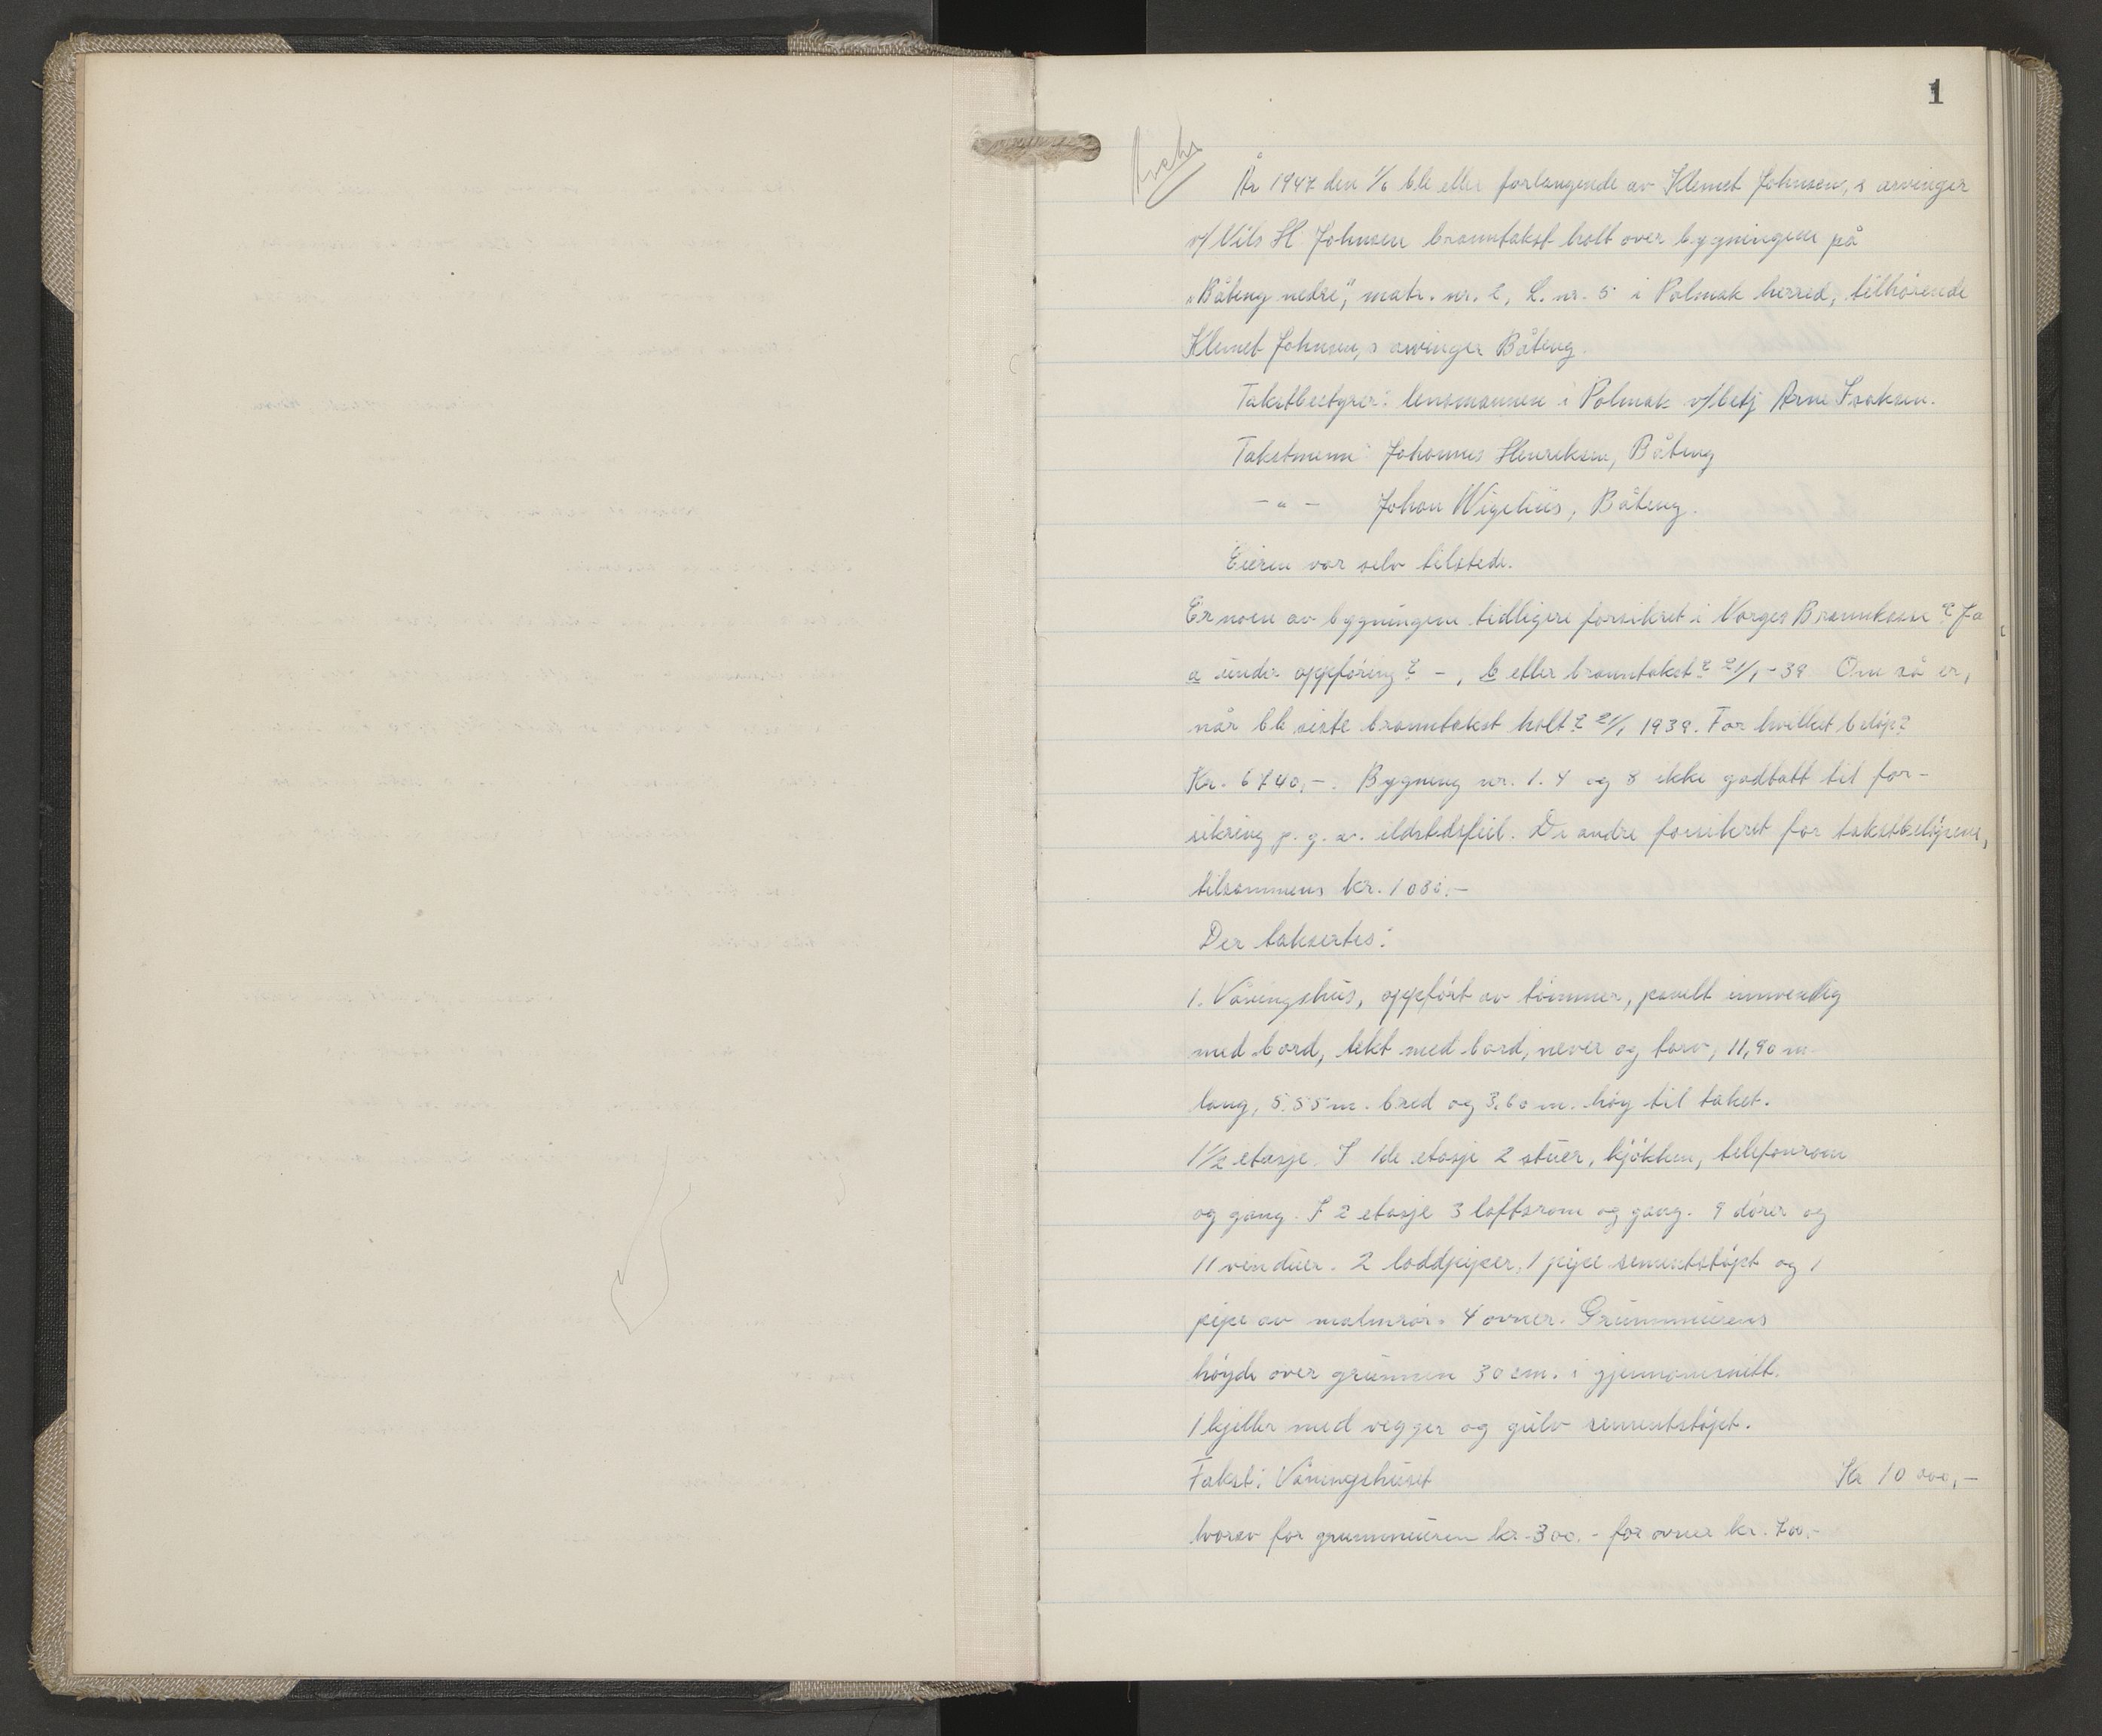 1
År 1947 den 1/6 ble etter forlangende av Klemet Johnsen,s arvinger
v/ Nils H. Johnsen branntakst holt over bygningene på
„Båteng nedre", matr. nr. 2, L. nr. 5 i Polmak herred, tilhørende
Klemet Johnsen,s arvinger Båteng.
Takstbestyrer: lensmannen i Polmak v/betj Arne Isaksen.
Takstmenn: Johannes Henriksen, Båteng
- " - Johan Wigelius, Båteng.
Eieren var selv tilstede.
Er noen av bygningene tidligere forsikret i Norges Brannkasse? Ja
a under oppføring? -, b etter branntakst? 21/1-39 Om så er,
når ble siste branntakst holt? 21/1 1939. For hvilket beløp?
Kr. 6740,-. Bygning nr. 1. 4 og 8 ikke godtatt til for-
sikring p. g. a. ildstedsfeil. De andre forsikret for takstbeløpene,
tilsammens kr. 1030.-
Der taksertes:
1. Våningshus, oppført av tømmer, panelt innvendig
med bord, tekt med bord, never og torv, 11,90 m
lang, 5.55 m. bred og 3,60 m. høy til taket.
1 1/2 etasje. I 1de etasje 2 stuer, kjøkken, telefonrom
og gang. I 2 etasje 3 loftsrom og gang. 9 dører og
11 vinduer. 2 loddpiper, 1 pipe sementstøpt og 1
pipe av malmrør. 4 ovner. Grunnmurens
høyde over grunnen 30 cm. i gjennomsnitt.
1 kjeller med vegger og gulv sementstøpt.
Takst: Våningshuset Kr 10 000,-
hvorav for grunnmuren kr. 300.- for ovner kr. 700.-